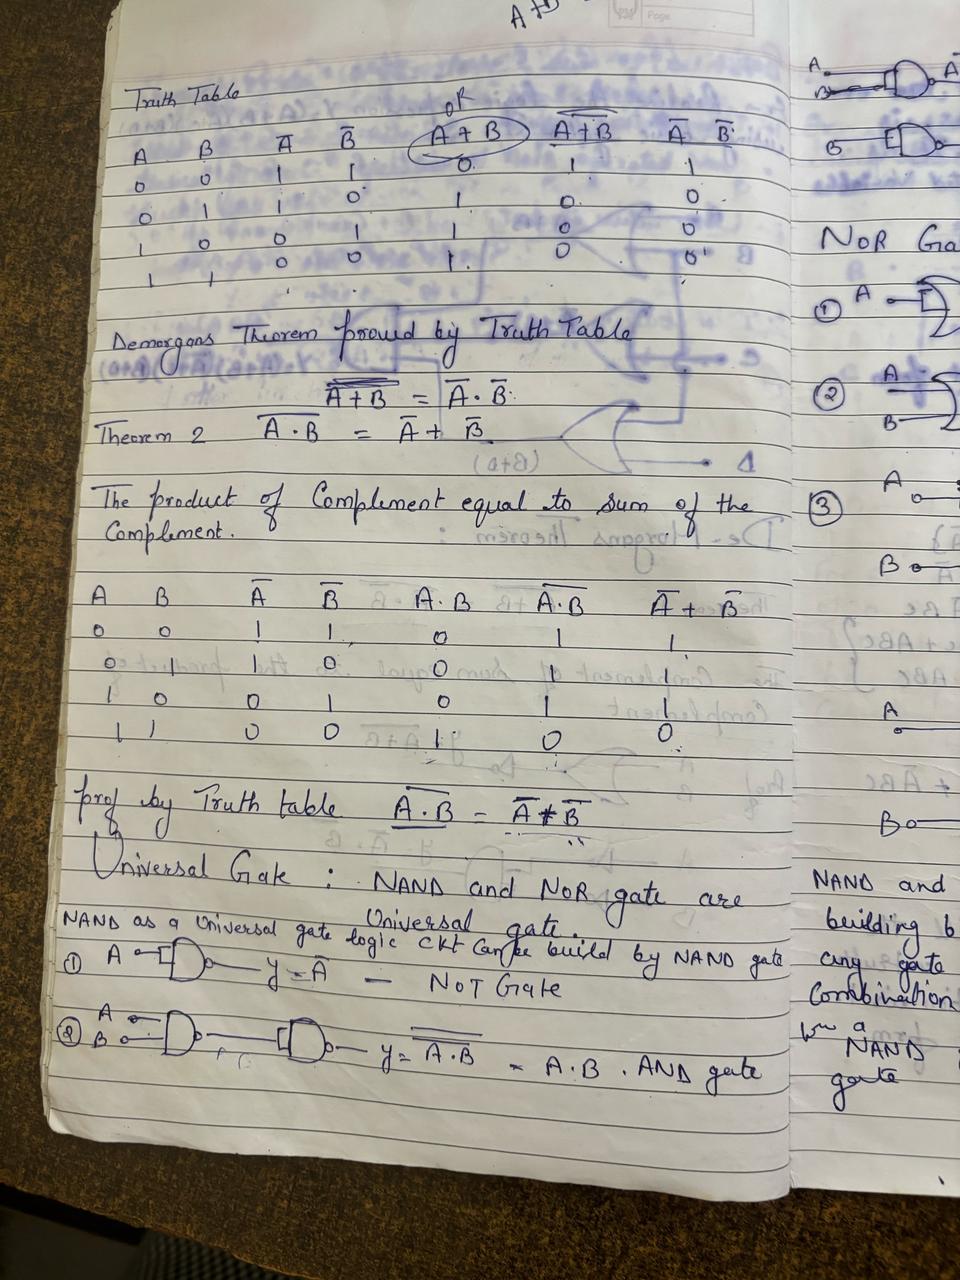 A+B
Page
Truth Table
OR
A B A̅ B̅ A + B A̅+̅B̅ A̅ B̅
0 0 1 1 0 1 1
0 1 1 0 1 0 0
1 0 0 1 1 0 0
1 1 0 0 1 0 0
Demorgans Theorem proved by Truth Table
A̅+̅B̅ = A̅ . B̅
Theorem 2 A̅.̅B̅ = A̅ + B̅
The product of Complement equal to sum of the
Complement.
A B A̅ B̅ A.B A̅.̅B̅ A̅ + B̅
0 0 1 1 0 1 1
0 1 1 0 0 1 1
1 0 0 1 0 1 1
1 1 0 0 1 0 0
prof by Truth table A̅.̅B̅ = A̅ + B̅
Universal Gate : NAND and NOR gate are
Universal gate.
NAND as a Universal gate logic ckt can be build by NAND gate
① A y = A̅ — NOT Gate
② A B y = A̿.̿B̿ = A.B . AND gate
A A̅
B
B
NOR Ga
① A
② A
B
③ A
B
A
B
NAND and
building b
any gate
Combination
a
NAND
gate